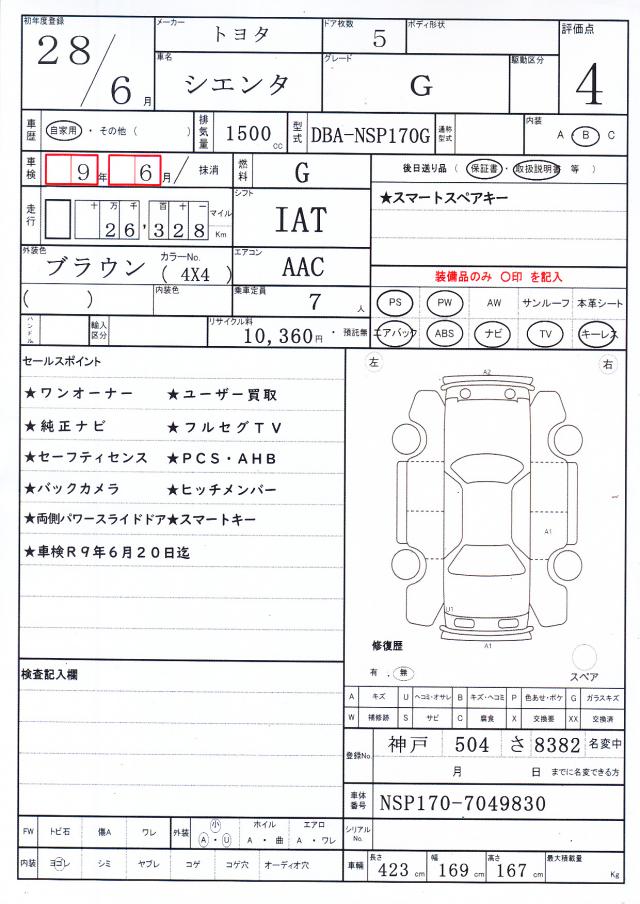 初年度登録 28/6月
メーカー トヨタ ドア枚数 5 ボディ形状
評価点 4
車名 シエンタ グレード G 駆動区分
車歴 自家用・その他( ) 排気量 1500cc 型式 DBA-NSP170G 通称型式 内装 A B C
車検 9年 6月/ 抹消 燃料 G 後日送り品(保証書・取扱説明書 等)
走行 十万千百十一 26,328 マイル Km シフト IAT ★スマートスペアキー
外装色 ブラウン カラーNo. (4X4) エアコン AAC 装備品のみ 〇印 を記入
( ) 内装色 乗車定員 7人 PS PW AW サンルーフ 本革シート
ハンドル 輸入区分 リサイクル料 10,360円・預託無 エアバック ABS ナビ TV キーレス
セールスポイント
★ワンオーナー ★ユーザー買取
★純正ナビ ★フルセグTV
★セーフティセンス ★PCS・AHB
★バックカメラ ★ヒッチメンバー
★両側パワースライドドア★スマートキー
★車検R9年6月20日迄
左 右
A2
A1
U1
A1
修復歴
有 . 無
スペア
検査記入欄
A キズ U ヘコミ・オサレ B キズ・ヘコミ P 色あせ・ボケ G ガラスキズ
W 補修跡 S サビ C 腐食 X 交換要 XX 交換済
登録No. 神戸 504 さ 8382 名変中
月 日 までに名変できる方
車体番号 NSP170-7049830
シリアルNo.
FW トビ石 傷A ワレ 外装 小 A・U ホイル A・曲 エアロ A・ワレ
内装 ヨゴレ シミ ヤブレ コゲ コゲ穴 オーディオ穴
車輌 長さ 423cm 幅 169cm 高さ 167cm 最大積載量 Kg